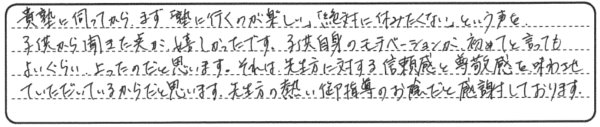 貴塾に伺ってから、まず「塾に行くのが楽しい」「絶対に休みたくない」という声を
子供から聞けた事が嬉しかったです。子供自身のモチベーションが、初めてと言っても
よいぐらい、上ったのだと思います。それは、先生方に対する信頼感と尊敬感を味わせ
ていただいているからだと思います。先生方の熱い御指導のお蔭だと感謝しております。